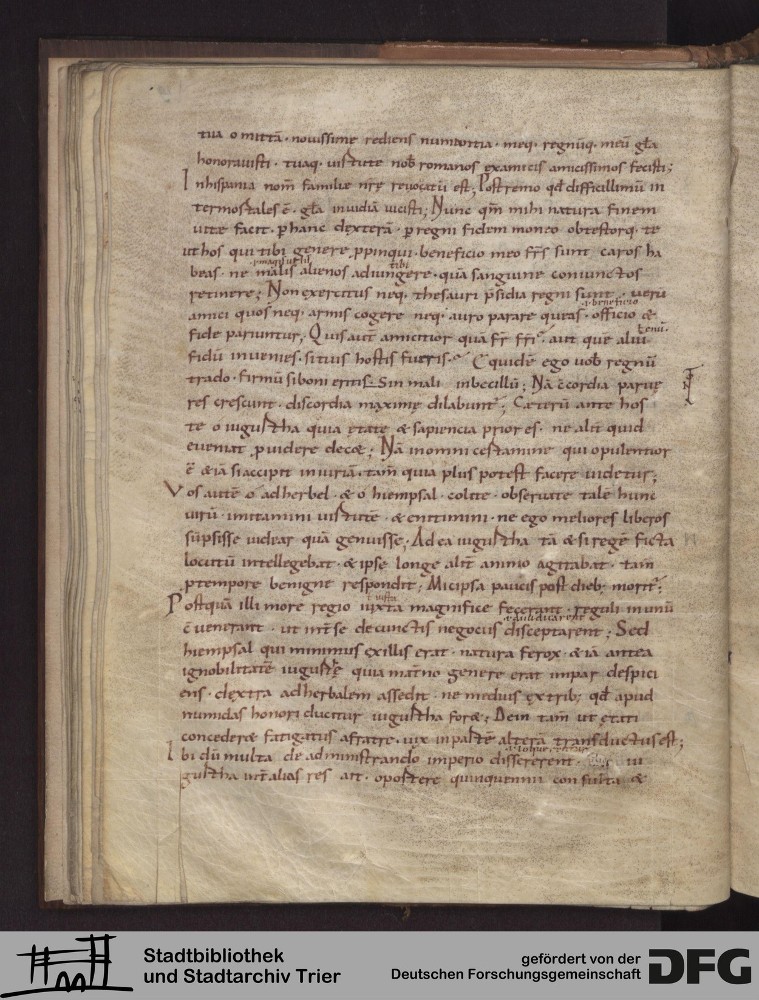 tua omittā. novissime rediens numantia. meq. regnūq. meū gła
honoravisti. tuaq. virtute nob romanos ex amicis amicissimos fecisti;
In hispania nom̄ familiæ nrę revocatū est; Postremo qđ difficillimū in
ter mortales ē. gła invidiā vicisti; Nunc qm̄ mihi natura finem
vitæ facit. p hanc dexterā. p regni fidem moneo obtestorq. te
ut hos qui tibi genere ppinqui. beneficio meo frs̄ sunt caros ha
tibi
beas. ne malis alienos adiungere. quā sanguine coniunctos
retinere; Non exercitus neq. thesauri p̄sidia regni sunt. verū
ł beneficio
amici quos neq. armis cogere neq. auro parare queas. officio &
fide pariuntur; Quis autē amicitior quā fr̄ fr̄i. aut quē aliū
fidū invenies. si tuis hostis fueris. Equidē ego vob regnū
trado. firmū si boni eritis. Sin mali. imbecillū; Nā c̄cordia parvę
res crescunt. discordia maximę dilabunt̄. Cæterū ante hos
te o iugurtha quia ętate & sapiencia prior es. ne alit̄ quid
eveniat pvidere dec&; Nā in omni certamine qui opulentior
ē & iā si accipit iniuriā. tam̄ quia plus potest facere videtur;
Vos autē o adherbel. & o hiempsal. colite. observate talē hunc
virū. imitamini virtutē. & enitimini. ne ego meliores liberos
sūpsisse videar quā genuisse; Ad ea iugurtha tā & si regē ficta
locutū intellegebat. & ipse longe alit̄ animo agitabat. tam̄
p tempore benigne respondit; Micipsa paucis post dieb; morit̄;
ł iusta
Postquā illi more regio iuxta magnifice fecerant. reguli in unū
c̄venerant. ut int̄ se de cunctis negociis disceptarent; Sed
hiempsal qui minimus ex illis erat. natura ferox. & iā antea
ignobilitatē iugurthę quia mat̄no genere erat impar despici
ens. dextra adherbalem assedit. ne medius ex trib; qđ apud
numidas honori ducitur iugurtha for&; Dein tam̄ ut ętati
conceder& fatigatus a fratre. vix in partē alterā transductus est;
Ibi dū multa de administrando imperio dissererent. iu
gurtha int̄ alias res ait. oportere quinquenni consulta &
Stadtbibliothek
und Stadtarchiv Trier
gefördert von der
Deutschen Forschungsgemeinschaft
DFG